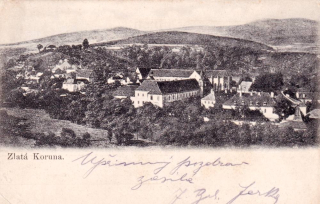 Zlatá Koruna.
Upřímný pozdrav
zasílá